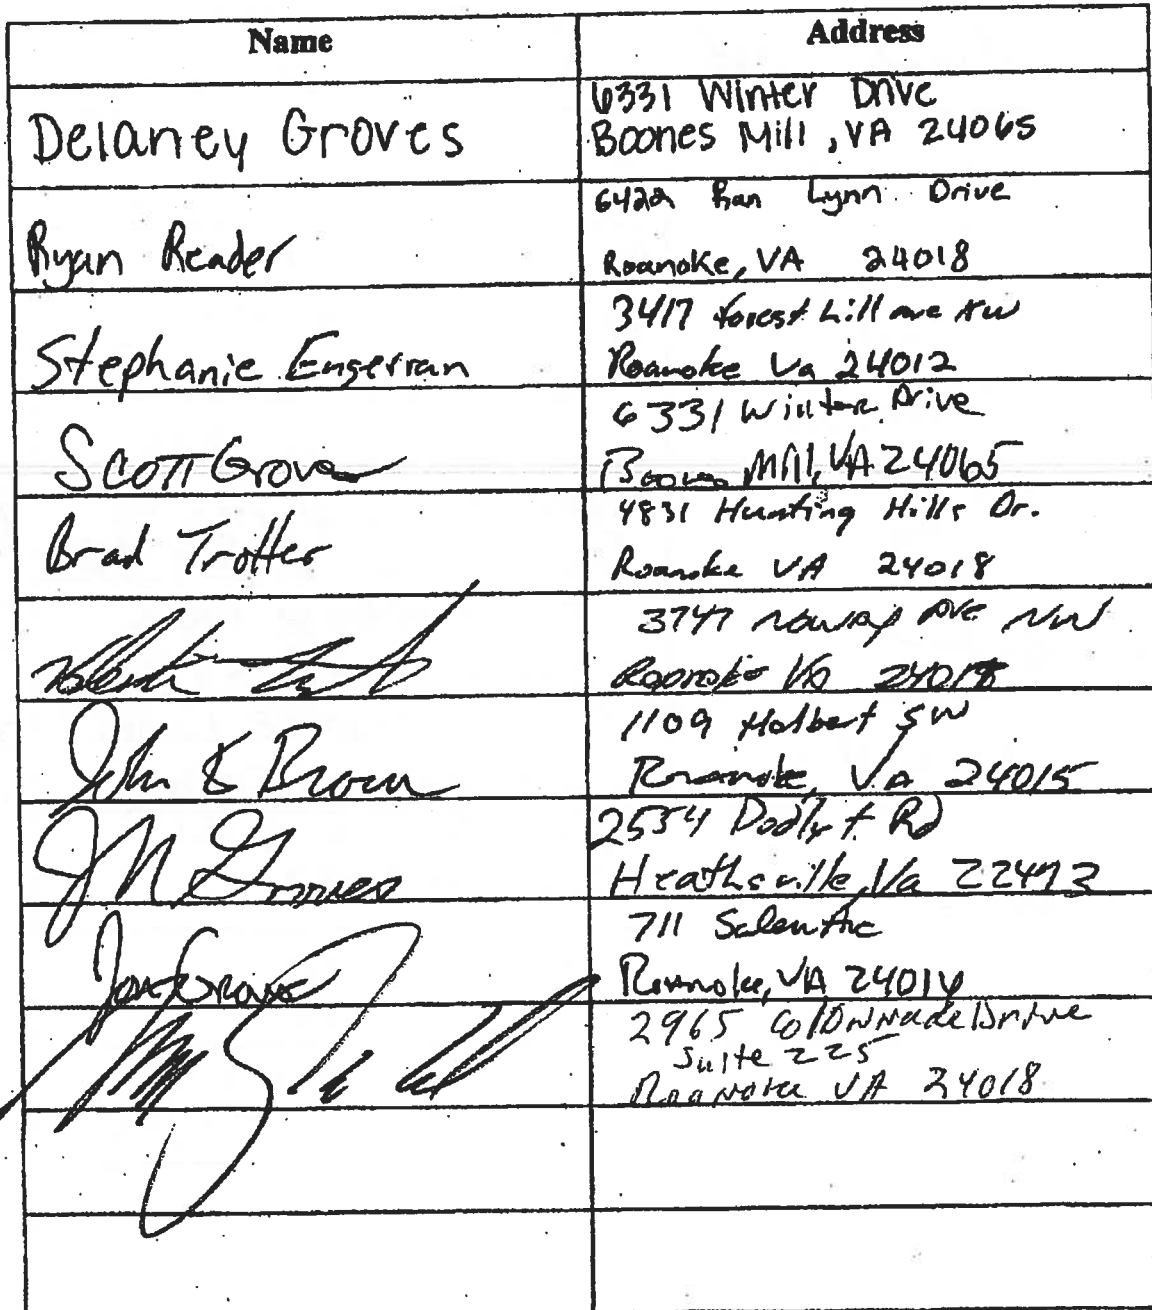 Name Address
Delaney Groves
6331 Winter Drive
Boones Mill, VA 24065
Ryan Reader
6422 Ran Lynn Drive
Roanoke, VA 24018
Stephanie
3417 Forest hill ave NW
Roanoke Va 24012
Scott Groves
6331 Winter Drive
Boones Mill, VA 24065
Brad Trotter
4831 Hunting Hills Dr.
Roanoke VA 24018
3747 Ave NW
Roanoke Va
John E Brown
1109 Holbert SW
Roanoke, VA 24015
J M Groves
2554 Rd
Heathsville, Va 22473
Jon Groves
711 Salem Ave
Roanoke, VA 24016
2965 Colonnade Drive
Suite 225
Roanoke VA 24018